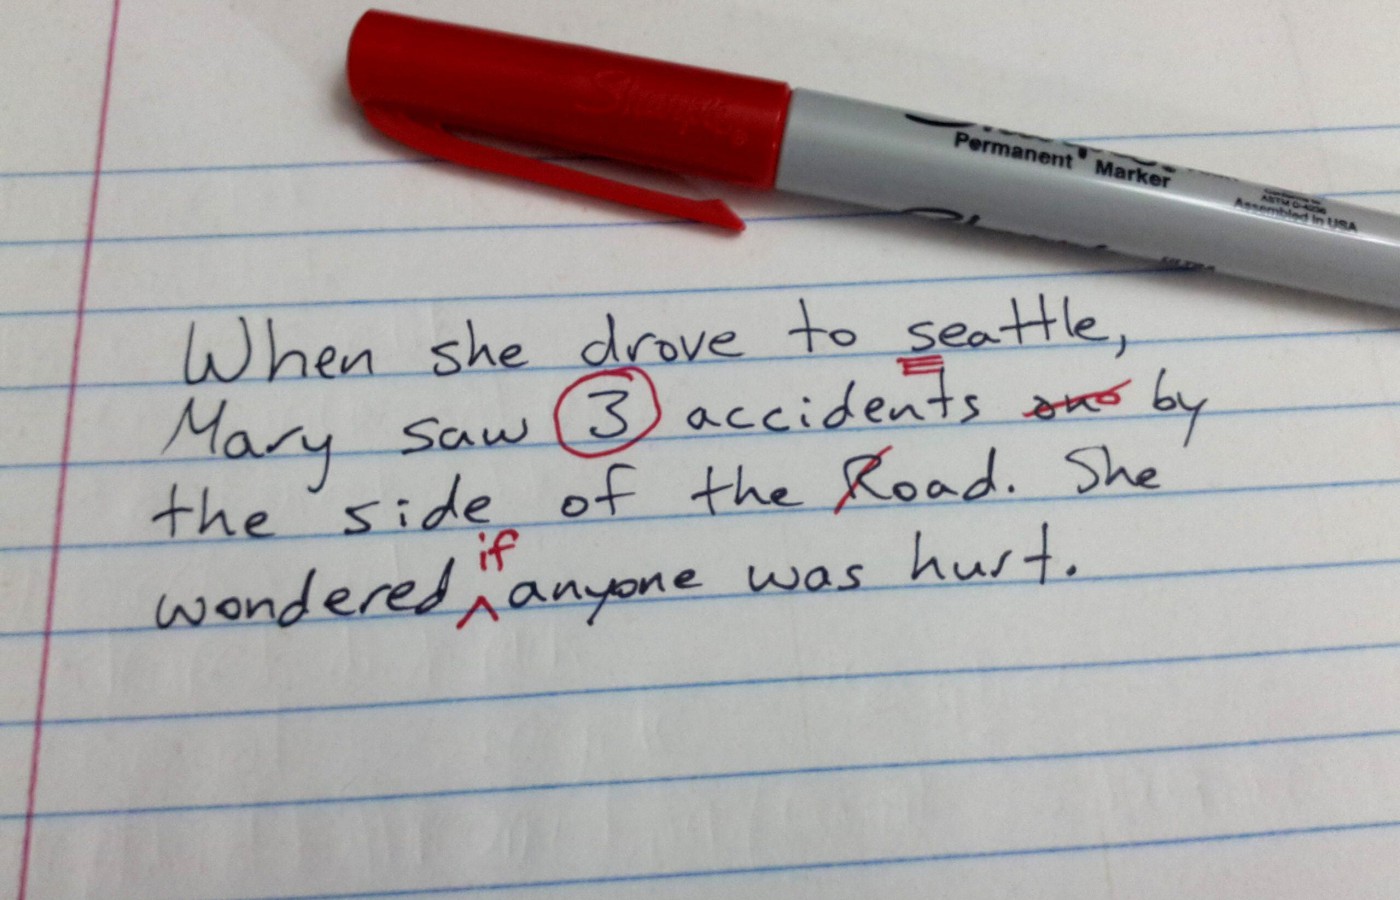 Sharpie
Permanent Marker
Assembled in USA
When she drove to seattle,
Mary saw 3 accidents by
the side of the Road. She
if
wondered anyone was hurt.